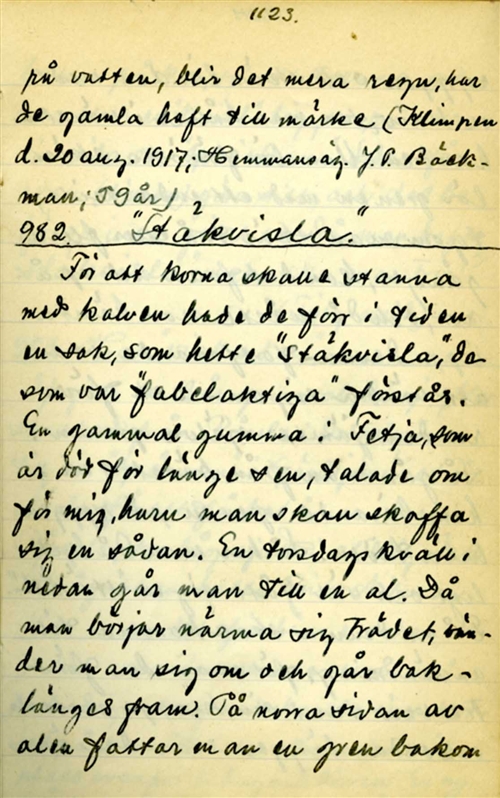 1123.
på vatten, blir det mera regn, har
de gamla haft till märke (Klimpen
d. 20 aug. 1917; Hemmansäg. J. P. Bäck-
man; 59 år)
?
982. "Ståkvisla."
För att korna skulle stanna
med kalven hade de förr i tiden
en sak, som hette "Ståkvisla", de
som var "fabelaktiga" förstås.
En gammal gumma i Fetja, som
är död för länge sen, talade om
för mig, huru man skall skaffa
sig en sådan. En torsdagskväll i
nedan går man till en al. Då
man börjar närma sig Trädet, vän-
der man sig om och går bak-
länges fram. På norra sidan av
alen fattar man en gren bakom